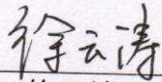 徐云涛